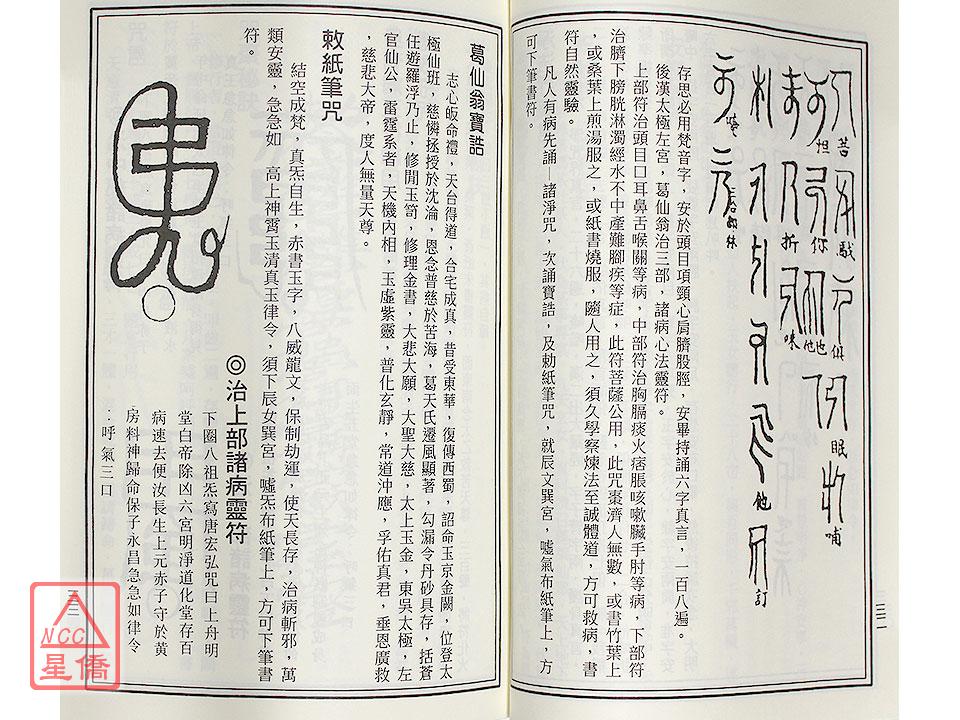 苦
馱
俱
怛
你
他
他
眠
哺
折
哚
他
訂
存思必用梵音字，安於頭目項頸心肩臍股脛，安畢持誦六字真言，一百八遍。
後漢太極左宮，葛仙翁治三部，諸病心法靈符。
上部符治頭目口耳鼻舌喉關等病，中部符治胸膈痰火痞脹咳嗽臟手肘等病，下部符
治臍下膀胱淋濁經水不中產難腳疾等症，此符菩薩公用，此咒棗濟人無數，或書竹葉上
，或桑葉上煎湯服之，或紙書燒服，隨人用之，須久學察煉法至誠體道，方可救病，書
符自然靈驗。
凡人有病先誦—諸淨咒，次誦寶誥，及勅紙筆咒，就辰文巽宮，噓氣布紙筆上，方
可下筆書符。
三二
葛仙翁寶誥
志心皈命禮，天台得道，合宅成真，昔受東華，復傳西蜀，詔命玉京金闕，位登太
極仙班，慈憐拯授於沈淪，恩念普慈於苦海，葛天氏遷風顯著，勾漏令丹砂具存，括蒼
任遊羅浮乃止，修閒玉笥，修理金書，大悲大願，大聖大慈，太上玉金，東吳太極，左
官仙公，雷霆系者，天機內相，玉虛紫靈，普化玄靜，常道沖應，孚佑真君，垂恩廣救
，慈悲大帝，度人無量天尊。
敕紙筆咒
結空成梵，真炁自生，赤書玉字，八威龍文，保制劫運，使天長存，治病斬邪，萬
類安靈，急急如　高上神霄玉清真玉律令，須下辰女巽宮，噓炁布紙筆上，方可下筆書
符。
◎治上部諸病靈符
下圈八祖炁寫唐宏弘咒曰上舟明
堂白帝除凶六宮明淨道化堂存百
病速去便汝長生上元赤子守於黃
房料神歸命保子永昌急急如律令
：呼　氣三口
三三
NCC
星僑